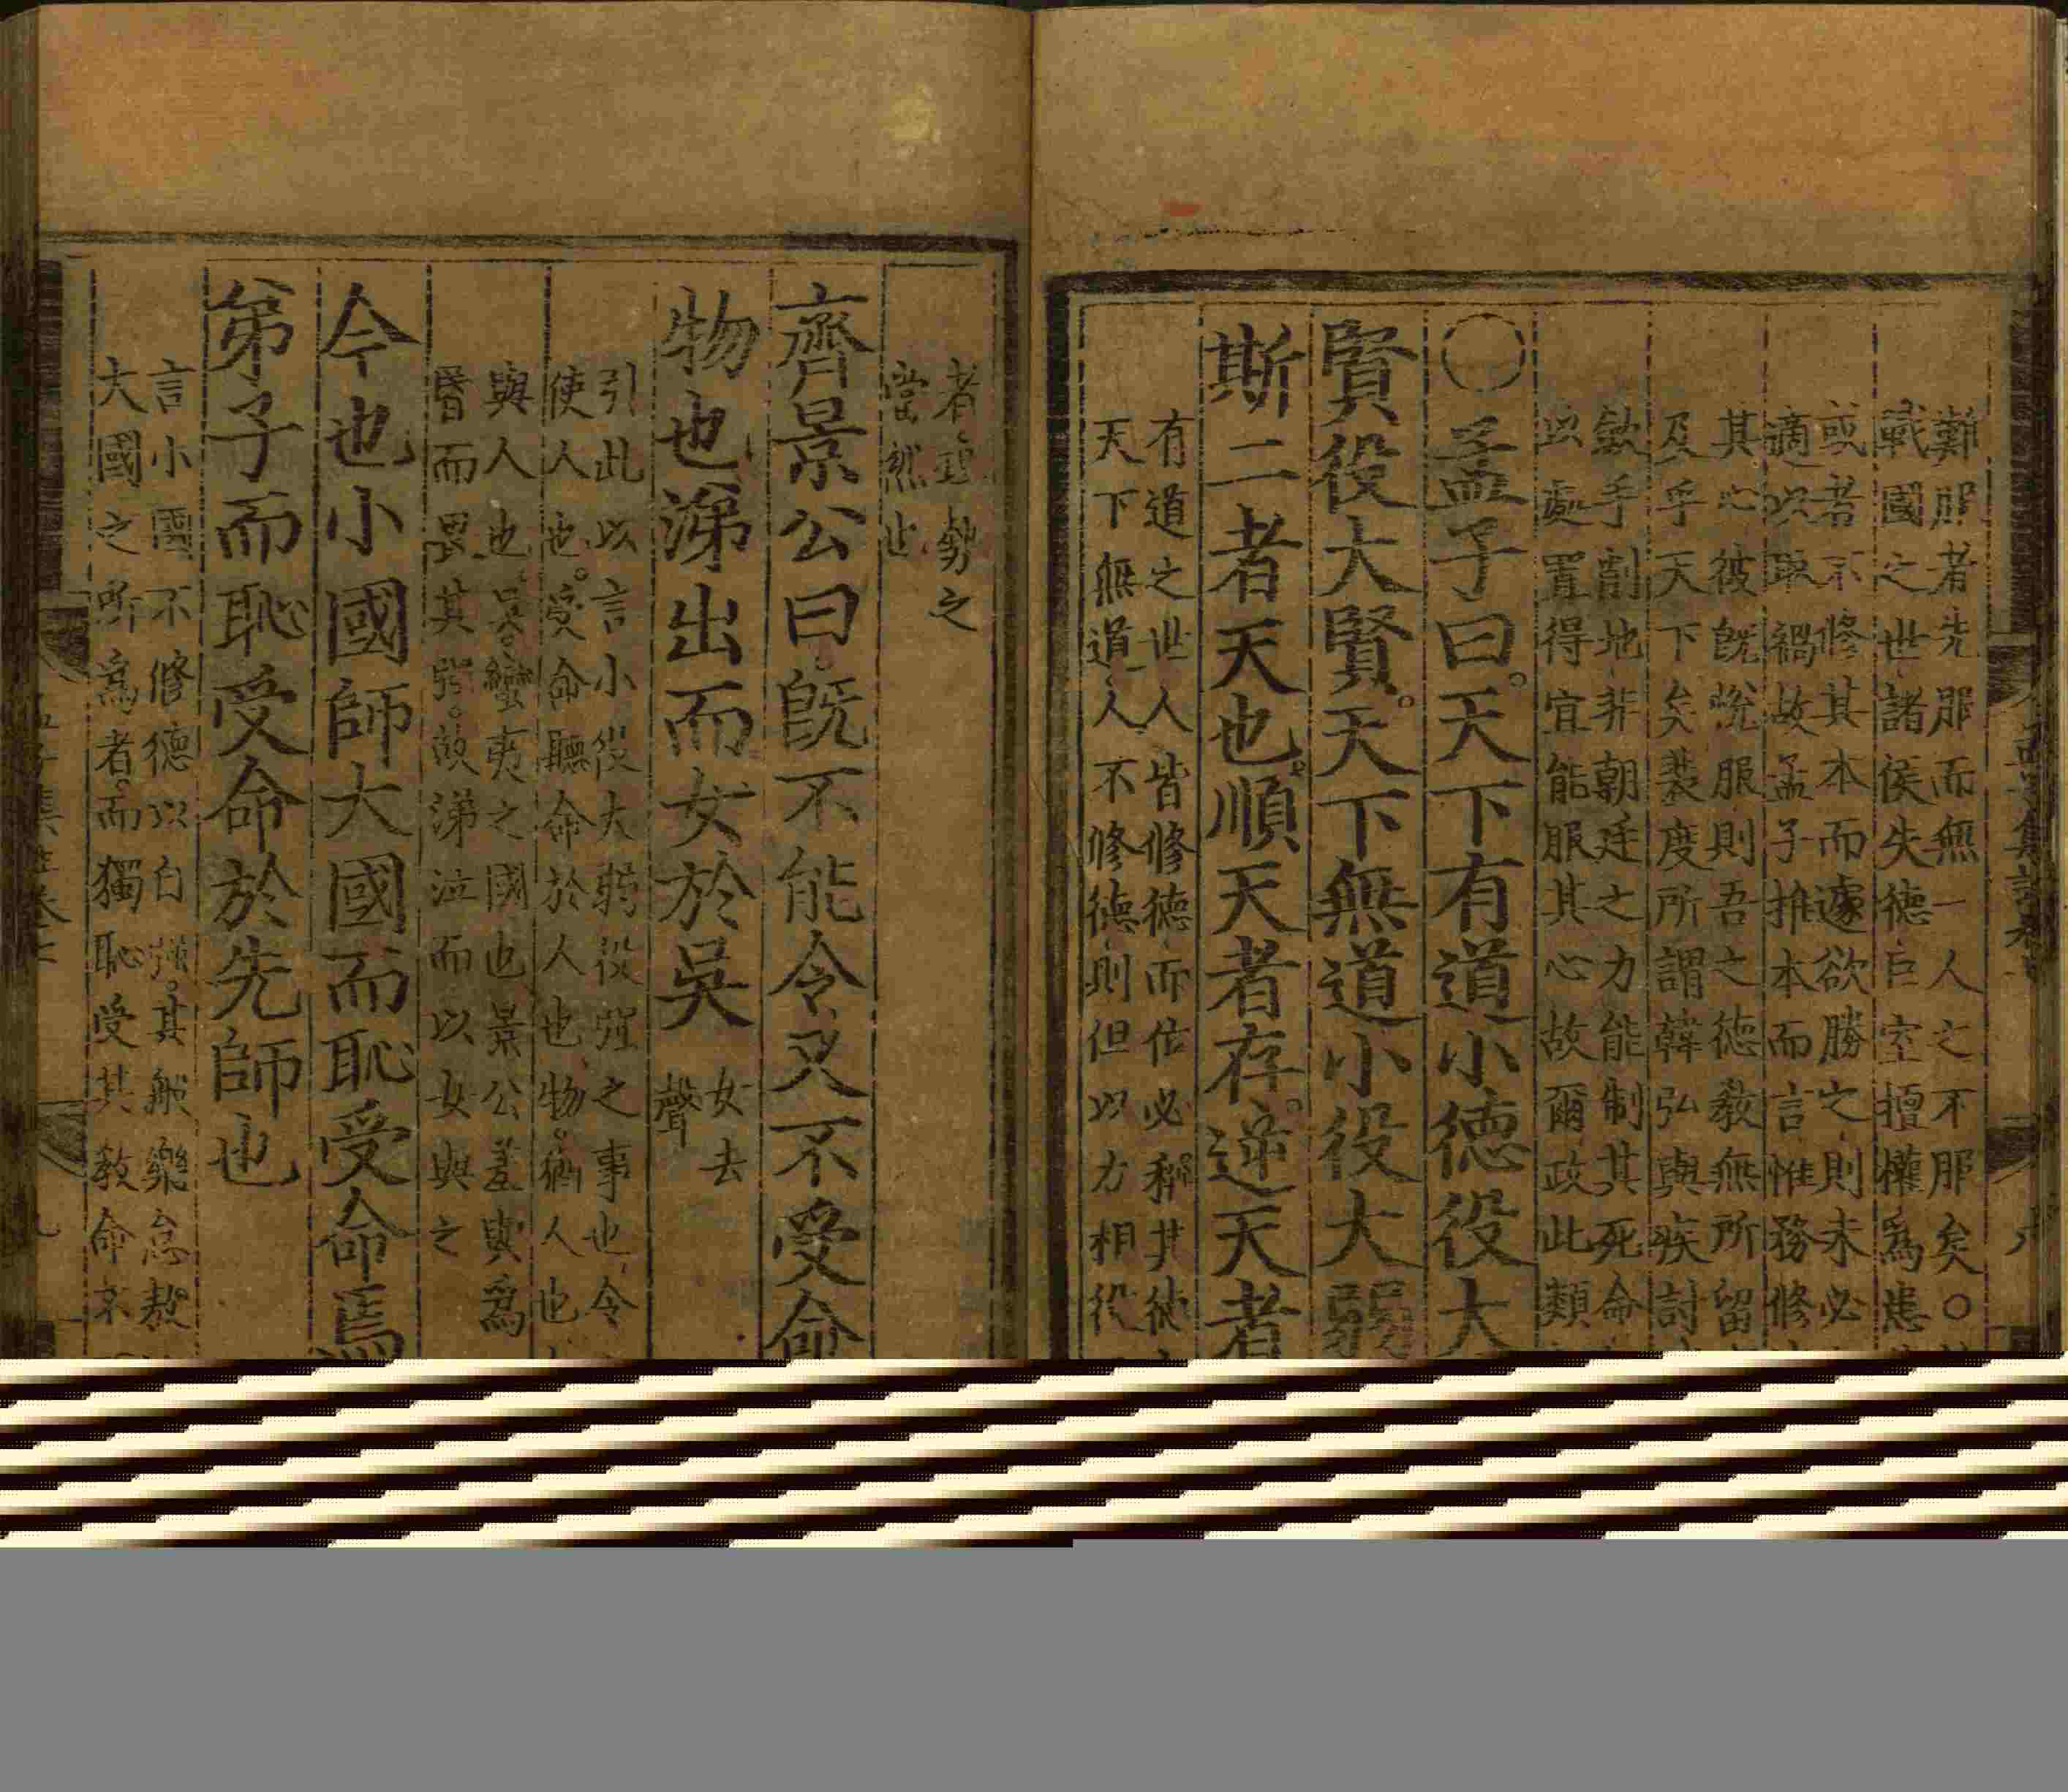 難服者先服而無一人之不服矣○
戰國之世諸侯失德巨室擅權爲患
或者不修其本而遽欲勝之則未必
適以取禍故孟子推本而言惟務修
其心彼旣悅服則吾之德敎無所留
及乎天下矣裴度所謂韓弘輿疾討
斂手削地非朝廷之力能制其死命
以處置得宜能服其心故爾政此類
○孟子曰天下有道小德役大
賢役大賢天下無道小役大弱
斯二者天也順天者存逆天者
有道之世人皆修德而位必稱其德
天下無道人不修德則但以力相役
者理勢之
當然也
齊景公曰旣不能令又不受命
物也涕出而女於吳
女去
聲
引此以言小役大弱役强之事也令
使人也受命聽命於人也物猶人也
與人也吳蠻夷之國也景公羞與爲
昏而畏其强故涕泣而以女與之
今也小國師大國而恥受命焉
弟子而恥受命於先師也
言小國不修德以自强其般樂怠敖
大國之所爲者而獨恥受其敎命不